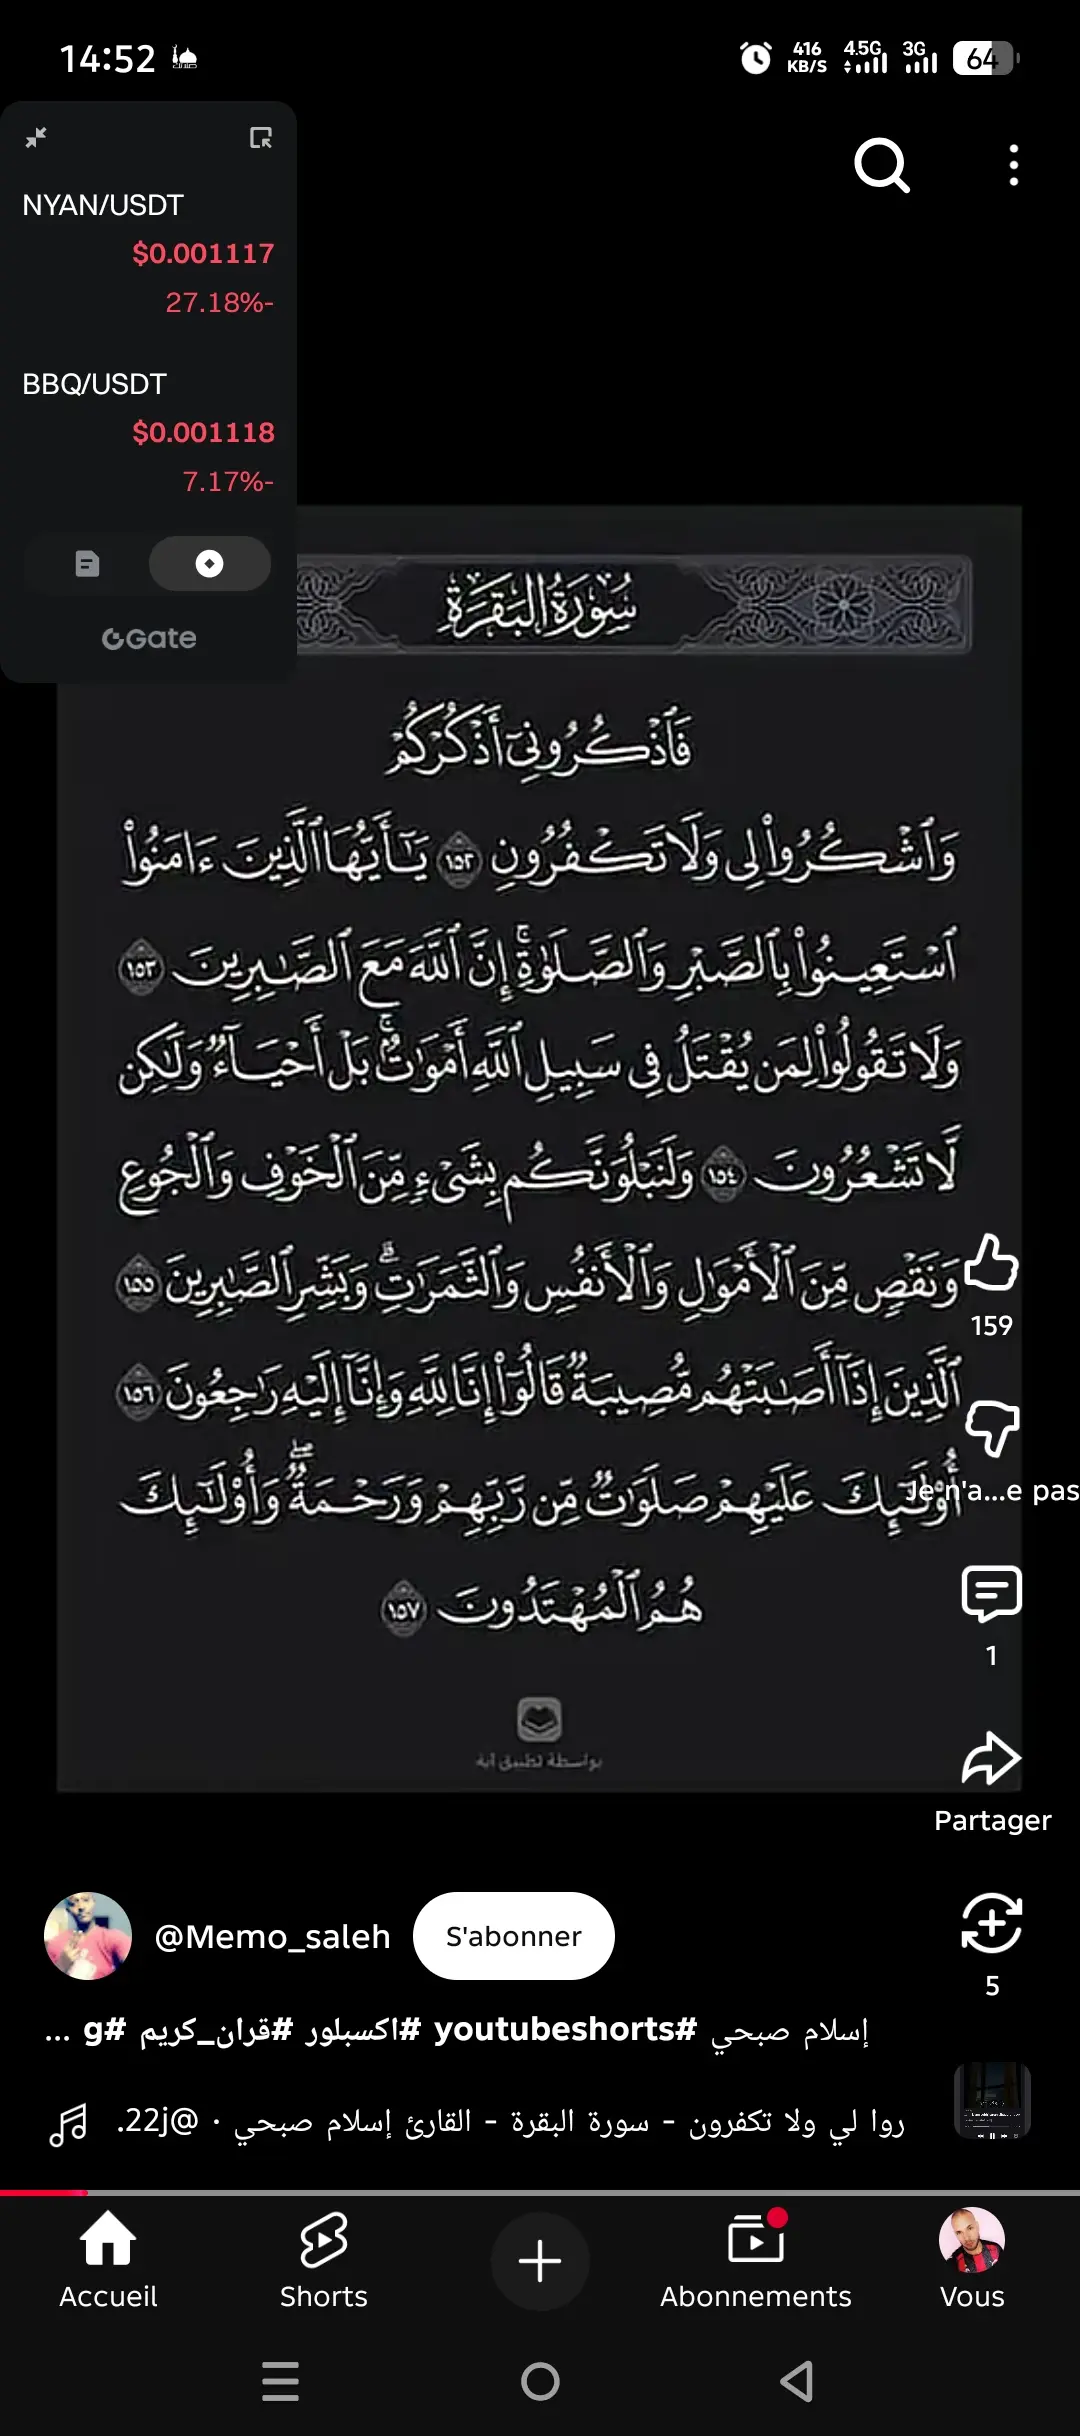 14:52
416 KB/S 4.5G 3G 64
NYAN/USDT
$0.001117
27.18%-
BBQ/USDT
$0.001118
7.17%-
Gate
سُورَةُ الْبَقَرَةِ
فَٱذْكُرُونِىٓ أَذْكُرْكُمْ
وَٱشْكُرُوا۟ لِى وَلَا تَكْفُرُونِ ١٥٢ يَـٰٓأَيُّهَا ٱلَّذِينَ ءَامَنُوا۟
ٱسْتَعِينُوا۟ بِٱلصَّبْرِ وَٱلصَّلَوٰةِ ۚ إِنَّ ٱللَّهَ مَعَ ٱلصَّـٰبِرِينَ ١٥٣
وَلَا تَقُولُوا۟ لِمَن يُقْتَلُ فِى سَبِيلِ ٱللَّهِ أَمْوَٰتٌۢ ۚ بَلْ أَحْيَآءٌ وَلَـٰكِن
لَّا تَشْعُرُونَ ١٥٤ وَلَنَبْلُوَنَّكُم بِشَىْءٍ مِّنَ ٱلْخَوْفِ وَٱلْجُوعِ
وَنَقْصٍ مِّنَ ٱلْأَمْوَٰلِ وَٱلْأَنفُسِ وَٱلثَّمَرَٰتِ ۗ وَبَشِّرِ ٱلصَّـٰبِرِينَ ١٥٥
ٱلَّذِينَ إِذَآ أَصَـٰبَتْهُم مُّصِيبَةٌ قَالُوٓا۟ إِنَّا لِلَّهِ وَإِنَّآ إِلَيْهِ رَٰجِعُونَ ١٥٦
أُو۟لَـٰٓئِكَ عَلَيْهِمْ صَلَوَٰتٌ مِّن رَّبِّهِمْ وَرَحْمَةٌ ۖ وَأُو۟لَـٰٓئِكَ
هُمُ ٱلْمُهْتَدُونَ ١٥٧
بواسطة تطبيق آية
159
Je n'a...e pas
1
Partager
5
@Memo_saleh
S'abonner
إسلام صبحي #youtubeshorts #اكسبلور #قران_كريم #g ...
روا لي ولا تكفرون - سورة البقرة - القارئ إسلام صبحي · @22j.
Accueil
Shorts
Abonnements
Vous